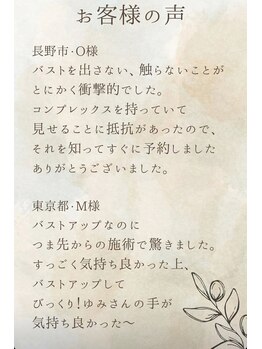 お客様の声
長野市・O様
バストを出さない、触らないことが
とにかく衝撃的でした。
コンプレックスを持っていて
見せることに抵抗があったので、
それを知ってすぐに予約しました
ありがとうございました。
東京都・M様
バストアップなのに
つま先からの施術で驚きました。
すっごく気持ち良かった上、
バストアップして
びっくり!ゆみさんの手が
気持ち良かった〜